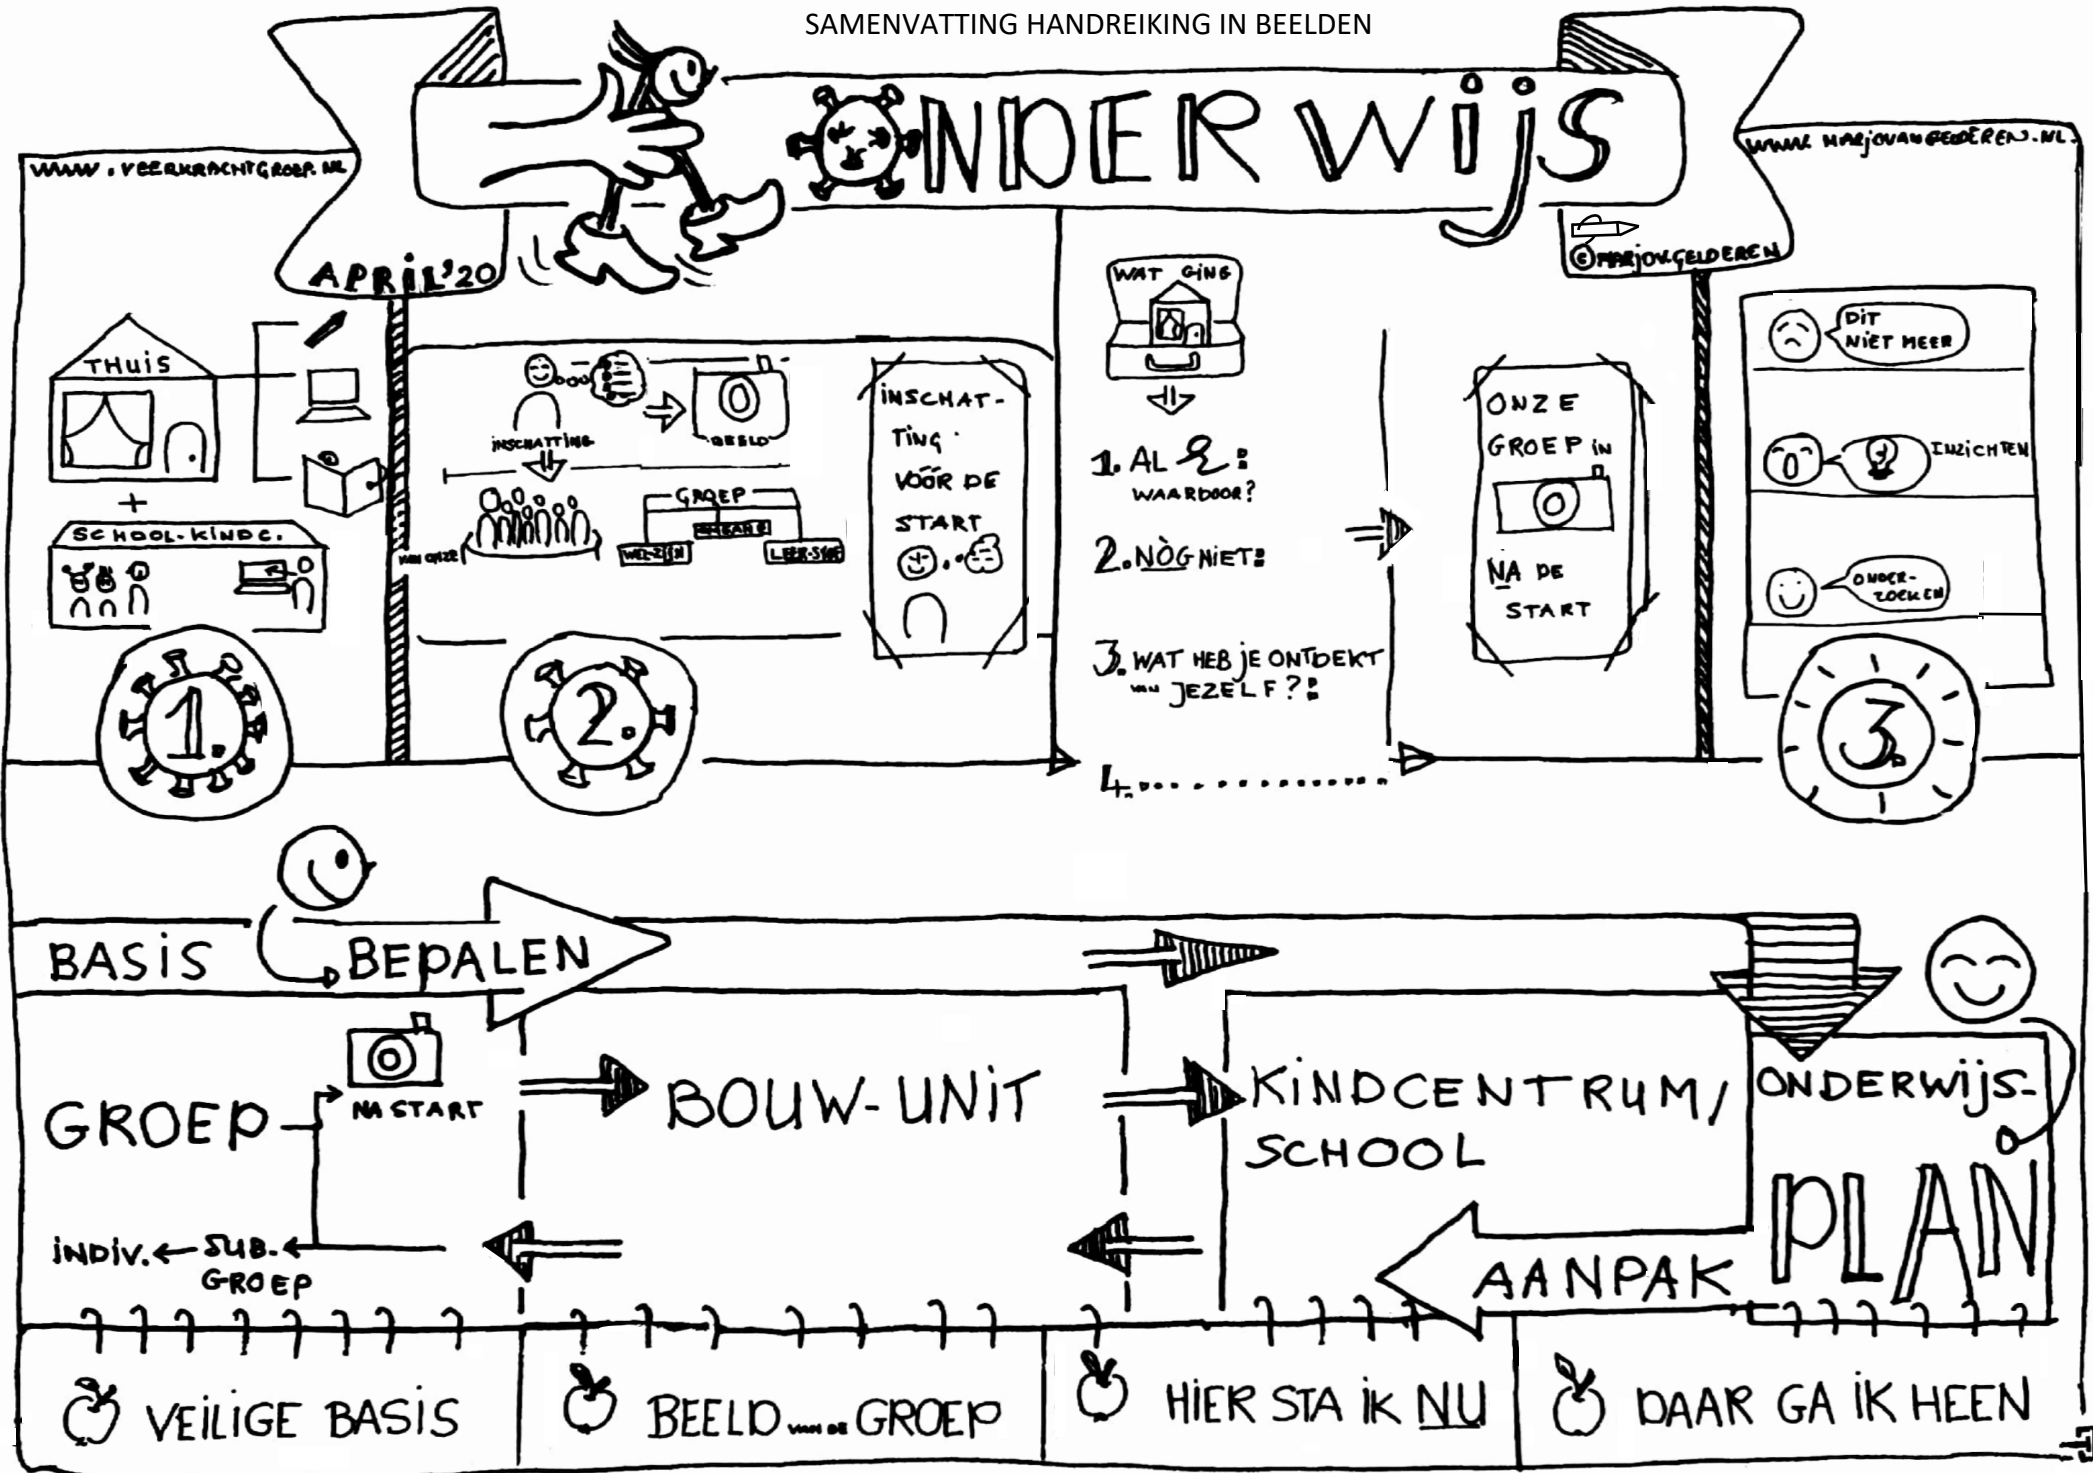 SAMENVATTING HANDREIKING IN BEELDEN
ONDERWIJS
WWW.VEERKRACHTGROEP.NL
WWW.MARJOVANGELDEREN.NL.
APRIL'20
©MARJOV.GELDEREN
THUIS
+
SCHOOL-KINDC.
1.
INSCHATTING
BEELD
VAN ONZE
GROEP
OMGANG
WEL-ZIJN
LEER-STOF
2.
INSCHAT-
TING
VÓÓR DE
START
WAT GING
1. AL
WAARDOOR?
2. NÒG NIET:
3. WAT HEB JE ONTDEKT
VAN JEZELF?:
4. ..............
ONZE
GROEP IN
NA DE
START
DIT
NIET MEER
INZICHTEN
ONDER-
ZOEKEN
3.
BASIS BEPALEN
GROEP
NA START
INDIV. ← SUB.
GROEP
BOUW-UNIT
KINDCENTRUM/
SCHOOL
ONDERWIJS-
PLAN
AANPAK
VEILIGE BASIS
BEELD VAN DE GROEP
HIER STA IK NU
DAAR GA IK HEEN